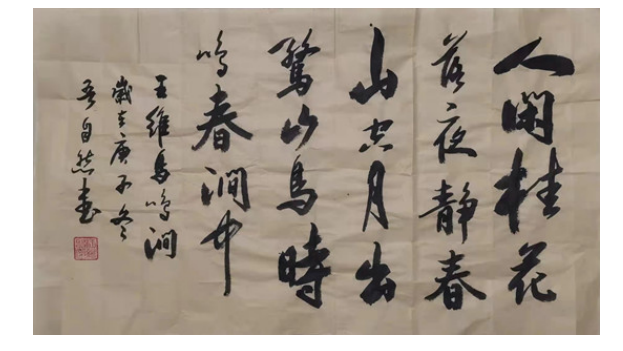 人閑桂花
落夜静春
山空月出
驚山鳥時
鳴春澗中
王維鳥鳴澗
歲在庚子冬
吾自然書